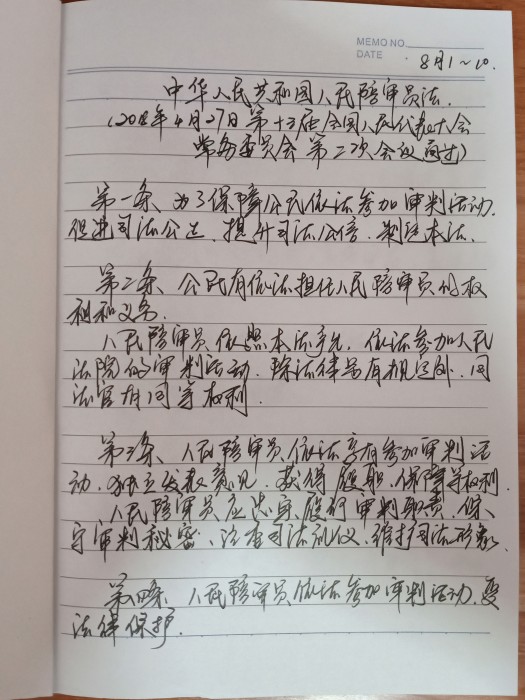 MEMO NO.
DATE 8月1~10.
中华人民共和国人民陪审员法.
(2018年4月27日第十三届全国人民代表大会
常务委员会第二次会议通过)
第一条、为了保障公民依法参加审判活动.
促进司法公正、提升司法公信、制定本法.
第二条、公民有依法担任人民陪审员的权
利和义务.
人民陪审员依照本法产生,依法参加人民
法院的审判活动.除法律另有规定外.同
法官有同等权利.
第三条、人民陪审员依法享有参加审判活
动.独立发表意见、获得履职保障等权利.
人民陪审员应忠实履行审判职责、保
守审判秘密、注重司法礼仪、维护司法形象.
第四条、人民陪审员依法参加审判活动.受
法律保护.